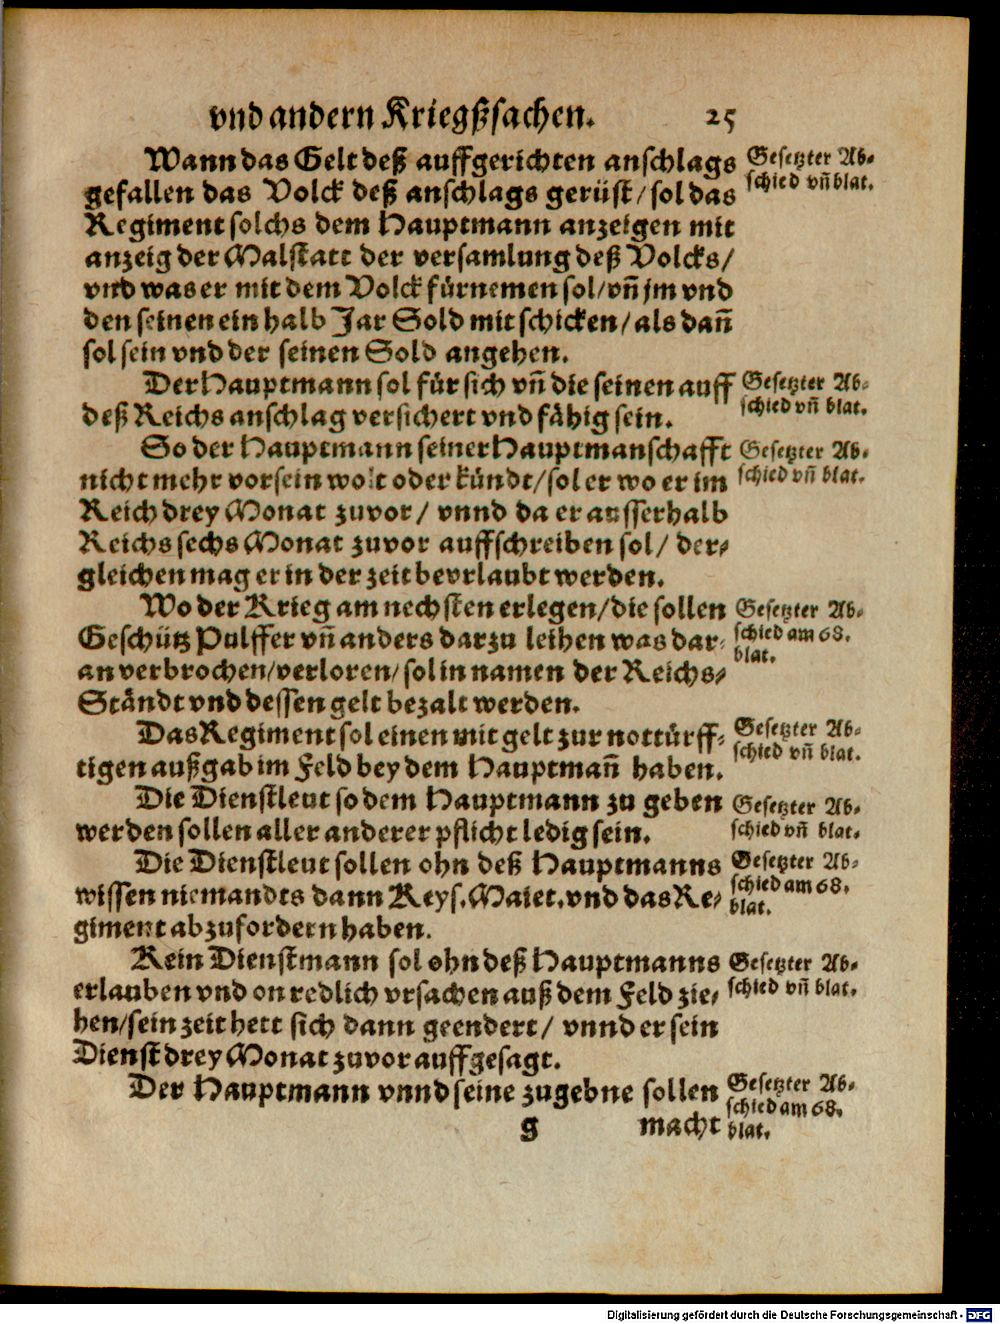 vnd andern Kriegßsachen. 25
Wann das Gelt deß auffgerichten anschlags
gefallen das Volck deß anschlags gerüst / sol das
Regiment solchs dem Hauptmann anzeigen mit
anzeig der Malstatt der versamlung deß Volcks /
vnd was er mit dem Volck fürnemen sol / vñ jm vnd
den seinen ein halb Jar Sold mit schicken / als dañ
sol sein vnd der seinen Sold angehen.
Gesetzter Ab-
schied vñ blat.
Der Hauptmann sol für sich vñ die seinen auff
deß Reichs anschlag versichert vnd fähig sein.
Gesetzter Ab-
schied vñ blat.
So der Hauptmann seiner Hauptmanschafft
nicht mehr vorsein wolt oder kündt / sol er wo er im
Reich drey Monat zuvor / vnnd da er ausserhalb
Reichs sechs Monat zuvor auffschreiben sol / der-
gleichen mag er in der zeit bevrlaubt werden.
Gesetzter Ab-
schied vñ blat.
Wo der Krieg am nechsten erlegen / die sollen
Geschütz Pulffer vñ anders darzu leihen was dar-
an verbrochen / verloren / sol in namen der Reichs-
Ständt vnd dessen gelt bezalt werden.
Gesetzter Ab-
schied am 68.
blat.
Das Regiment sol einen mit gelt zur nottürff-
tigen außgab im Feld bey dem Hauptmañ haben.
Gesetzter Ab-
schied vñ blat.
Die Dienstleut so dem Hauptmann zu geben
werden sollen aller anderer pflicht ledig sein.
Gesetzter Ab-
schied vñ blat.
Die Dienstleut sollen ohn deß Hauptmanns
wissen niemandts dann Keys. Maiet. vnd das Re-
giment abzufordern haben.
Gesetzter Ab-
schied am 68.
blat.
Kein Dienstmann sol ohn deß Hauptmanns
erlauben vnd on redlich vrsachen auß dem Feld zie-
hen / sein zeit hett sich dann geendert / vnnd er sein
Dienst drey Monat zuvor auffgesagt.
Gesetzter Ab-
schied vñ blat.
Der Hauptmann vnnd seine zugebne sollen
Gesetzter Ab-
schied am 68.
blat.
g macht
Digitalisierung gefördert durch die Deutsche Forschungsgemeinschaft - DFG